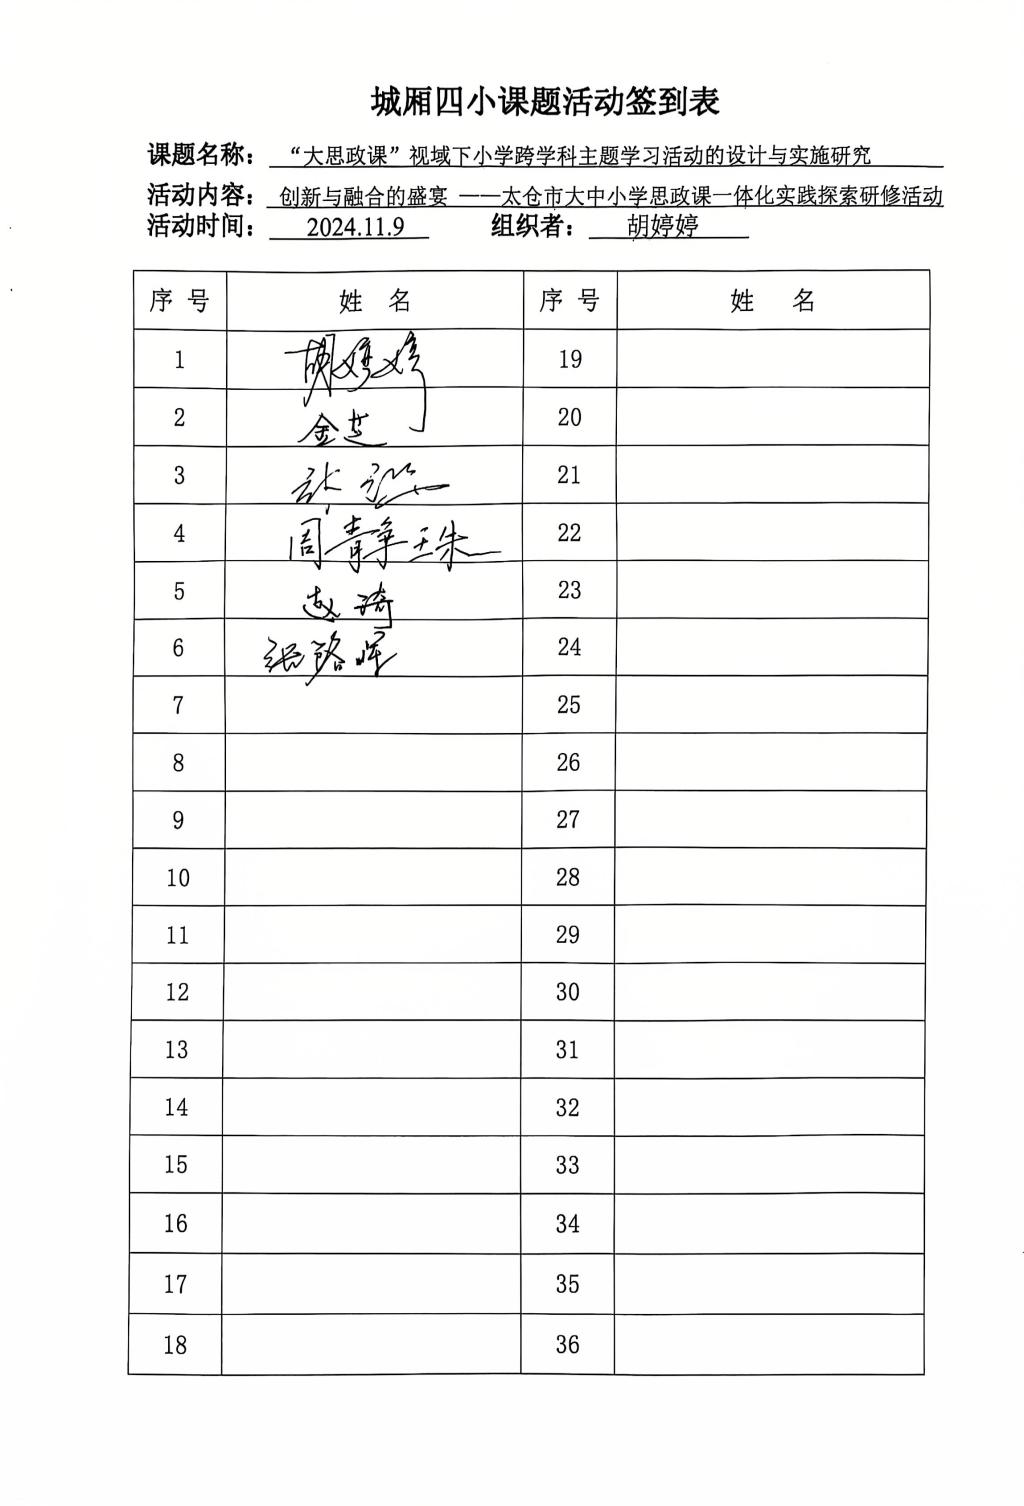 城厢四小课题活动签到表
课题名称： “大思政课”视域下小学跨学科主题学习活动的设计与实施研究
活动内容： 创新与融合的盛宴 ——太仓市大中小学思政课一体化实践探索研修活动
活动时间： 2024.11.9 组织者： 胡婷婷
序 号 姓 名 序 号 姓 名
1 胡婷婷 19
2 金芝 20
3 21
4 周静珠 22
5 赵琦 23
6 24
7 25
8 26
9 27
10 28
11 29
12 30
13 31
14 32
15 33
16 34
17 35
18 36